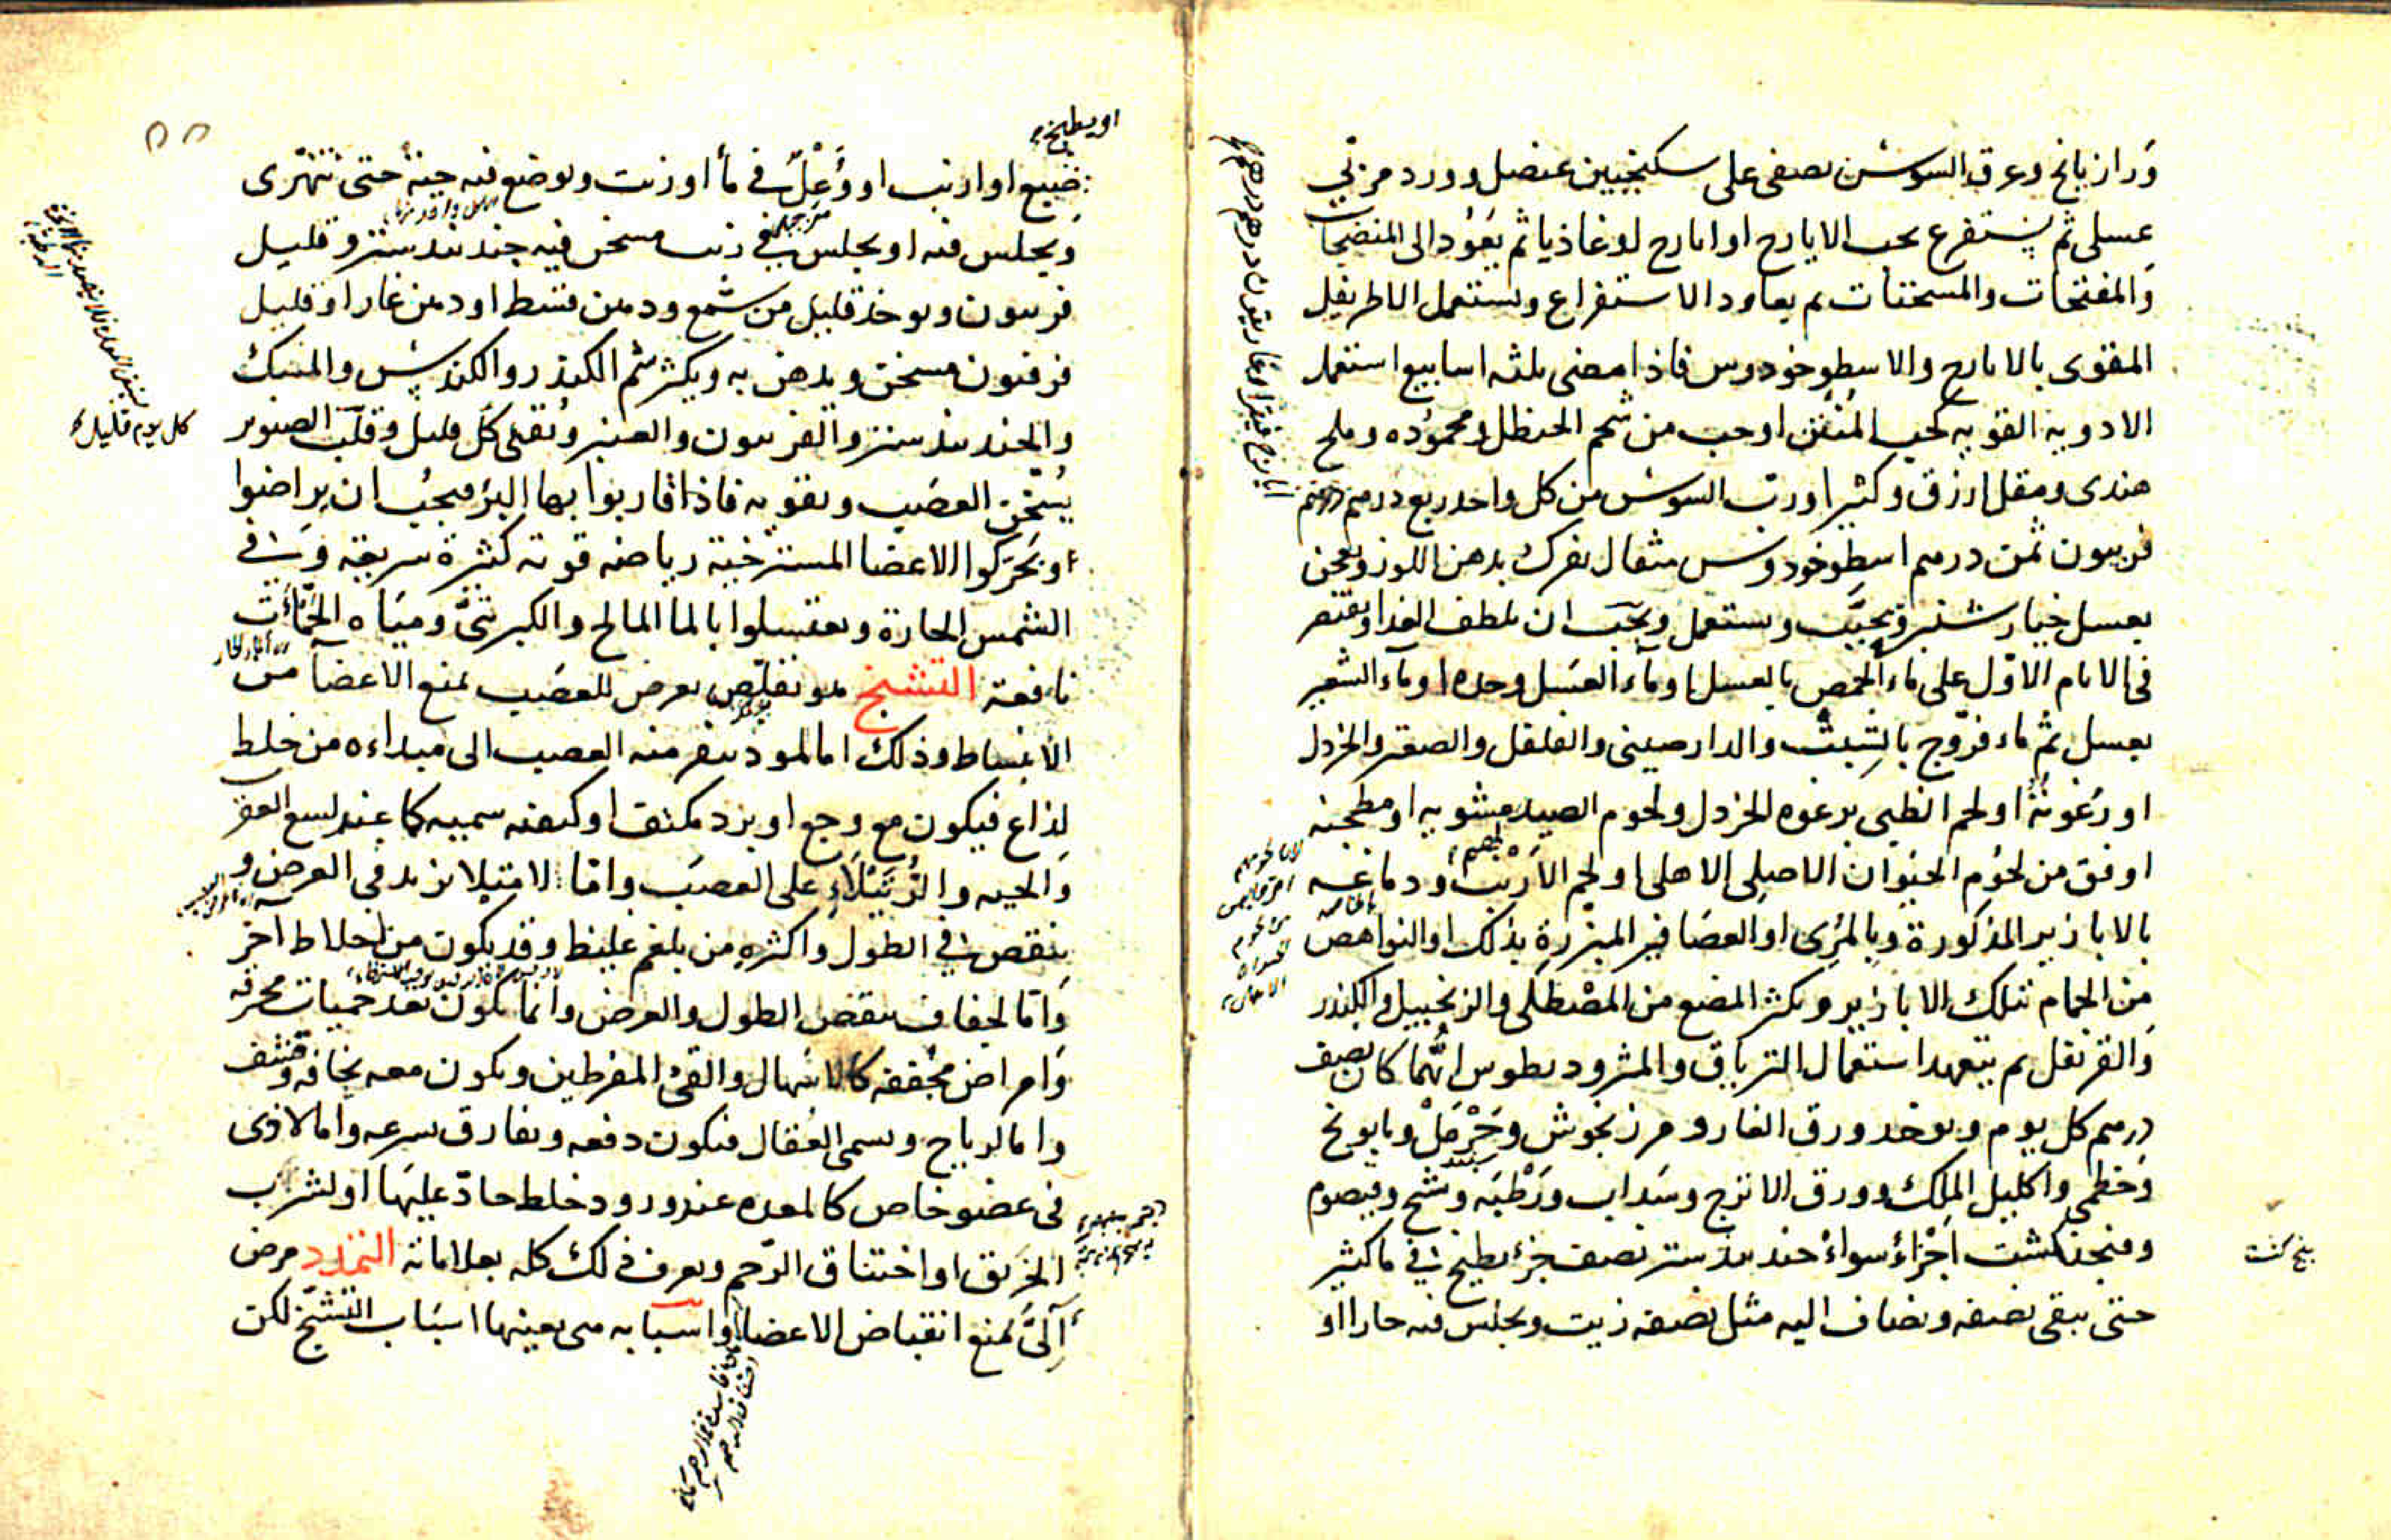 ورازيانج وعرق السوس يصفى على سكنجبين عنصل وورد مربي
عسلى ثم يستفرغ بحب الايارج او ايارج لوغاذيا ثم يعود الى المنضجات
والمفتحات والمسخنات ثم يعاود الاستفراغ ويستعمل الاطريفل
المقوى بالايارج والاسطوخودوس فاذا مضى ثلثه اسابيع استعمل
الادوية القوية كحب المنتن او حب من شحم الحنظل ومحموده وملح
هندى ومقل ازرق وكثيرا ورب السوس من كل واحد ربع درهم
فربيون ثمن درهم اسطوخودوس مثقال يفرك بدهن اللوز ويعجن
بعسل خيارشنبر ويحبب ويستعمل ويجب ان يلطف الغدا ويقتصر
فى الايام الاول على ماء الحمص بالعسل او ماء العسل وحده او ماء الشعير
بعسل ثم ماء فروج بالشبث والدارصينى والفلفل والصعتر والخردل
او رغوته او لحم الظبى برغوه الخردل ولحوم الصيد مشويه او مطجنه
اوفق من لحوم الحيوان الاهلى او لحم الارنب ودماغه
بالابازير المذكورة وبالمرى او العصافير المبزرة بذلك او النواهض
من الحمام بتلك الابازير ويكثر المضغ من المصطكى والزنجبيل والكندر
والقرنفل ثم يتعهد استعمال الترياق والمثروديطوس ايهما كان نصف
درهم كل يوم ويوخد ورق الغار ومرزنجوش وحرمل وبابونج
وخطمى واكليل الملك وورق الاترج وسداب ورطبه وشيح وقيصوم
وفنجنكشت اجزاء سواء جندبيدستر نصف جزء يطبخ في ما كثير
حتى يبقى نصفه ويضاف اليه مثل نصفه زيت ويجلس فيه حارا او
پنج كشت
او يطبخ
ضبع او ارنب او وعل في ما او زيت ويوضع فيه حية حتى تتهرى
ويجلس فيه او يجلس في زيت مسخن فيه جندبيدستر وقليل
فربيون ويوخذ قليل من شمع ودهن قسط او دهن غار او قليل
فرفيون مسخن ويدهن به ويكثر شم الكندر والكندس والمسك
والجندبيدستر والفربيون والعنبر ونقلى كل قليل وقلب الصنوبر
يسخن العصب ويقويه فاذا قاربوا بها البرء فيجب ان يراضوا
او يحركوا الاعضا المسترخية رياضه قويه كثيرة سريعه وفي
الشمس الحارة ويغتسلوا بالما المالح والكبريتى ومياه الحمات
نافعة التشنج هو تقلص يعرض للعصب يمنع الاعضا من
الانبساط وذلك اما لموذ ينفر منه العصب الى مبداءه من خلط
لذاع فيكون مع وجع او برد مكثف او كيفيه سميه كما عند لسع العقرب
والحيه والرتيلاء على العصب واما لامتلا يزيد في العرض و
ينقص في الطول واكثره من بلغم غليظ وقد يكون من اخلاط اخر
واما لجفاف ينقص الطول والعرض وانما يكون بعد حميات محرقه
وامراض مجففه كالاسهال والقئ المفرطين ويكون معه نحافه وقشف
واما لرياح ويسمى العقال فيكون دفعه ويفارق بسرعه واما لاذى
فى عضو خاص كالمعده عند ورود خلط حاد عليها او لشرب
الخربق او اختناق الرحم ويعرف ذلك كله بعلاماته التمدد مرض
آلى يمنع انقباض الاعضا واسبابه هى بعينها اسباب التشنج لكن
كل يوم قليل